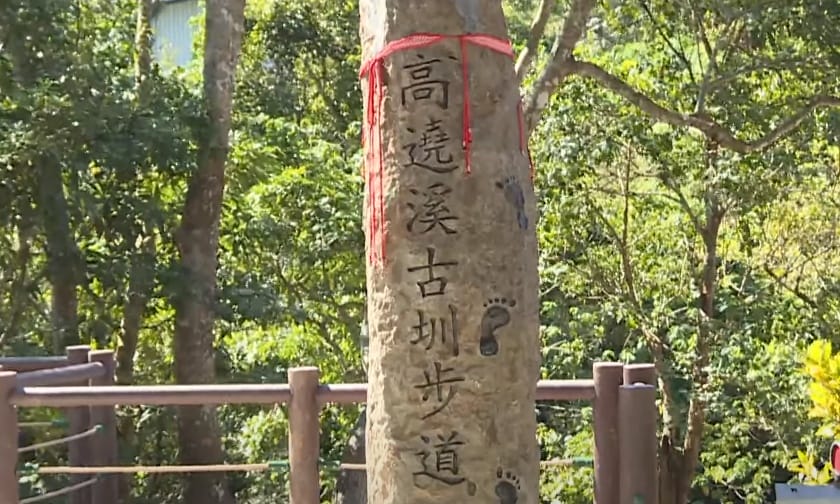 高遶溪古圳步道